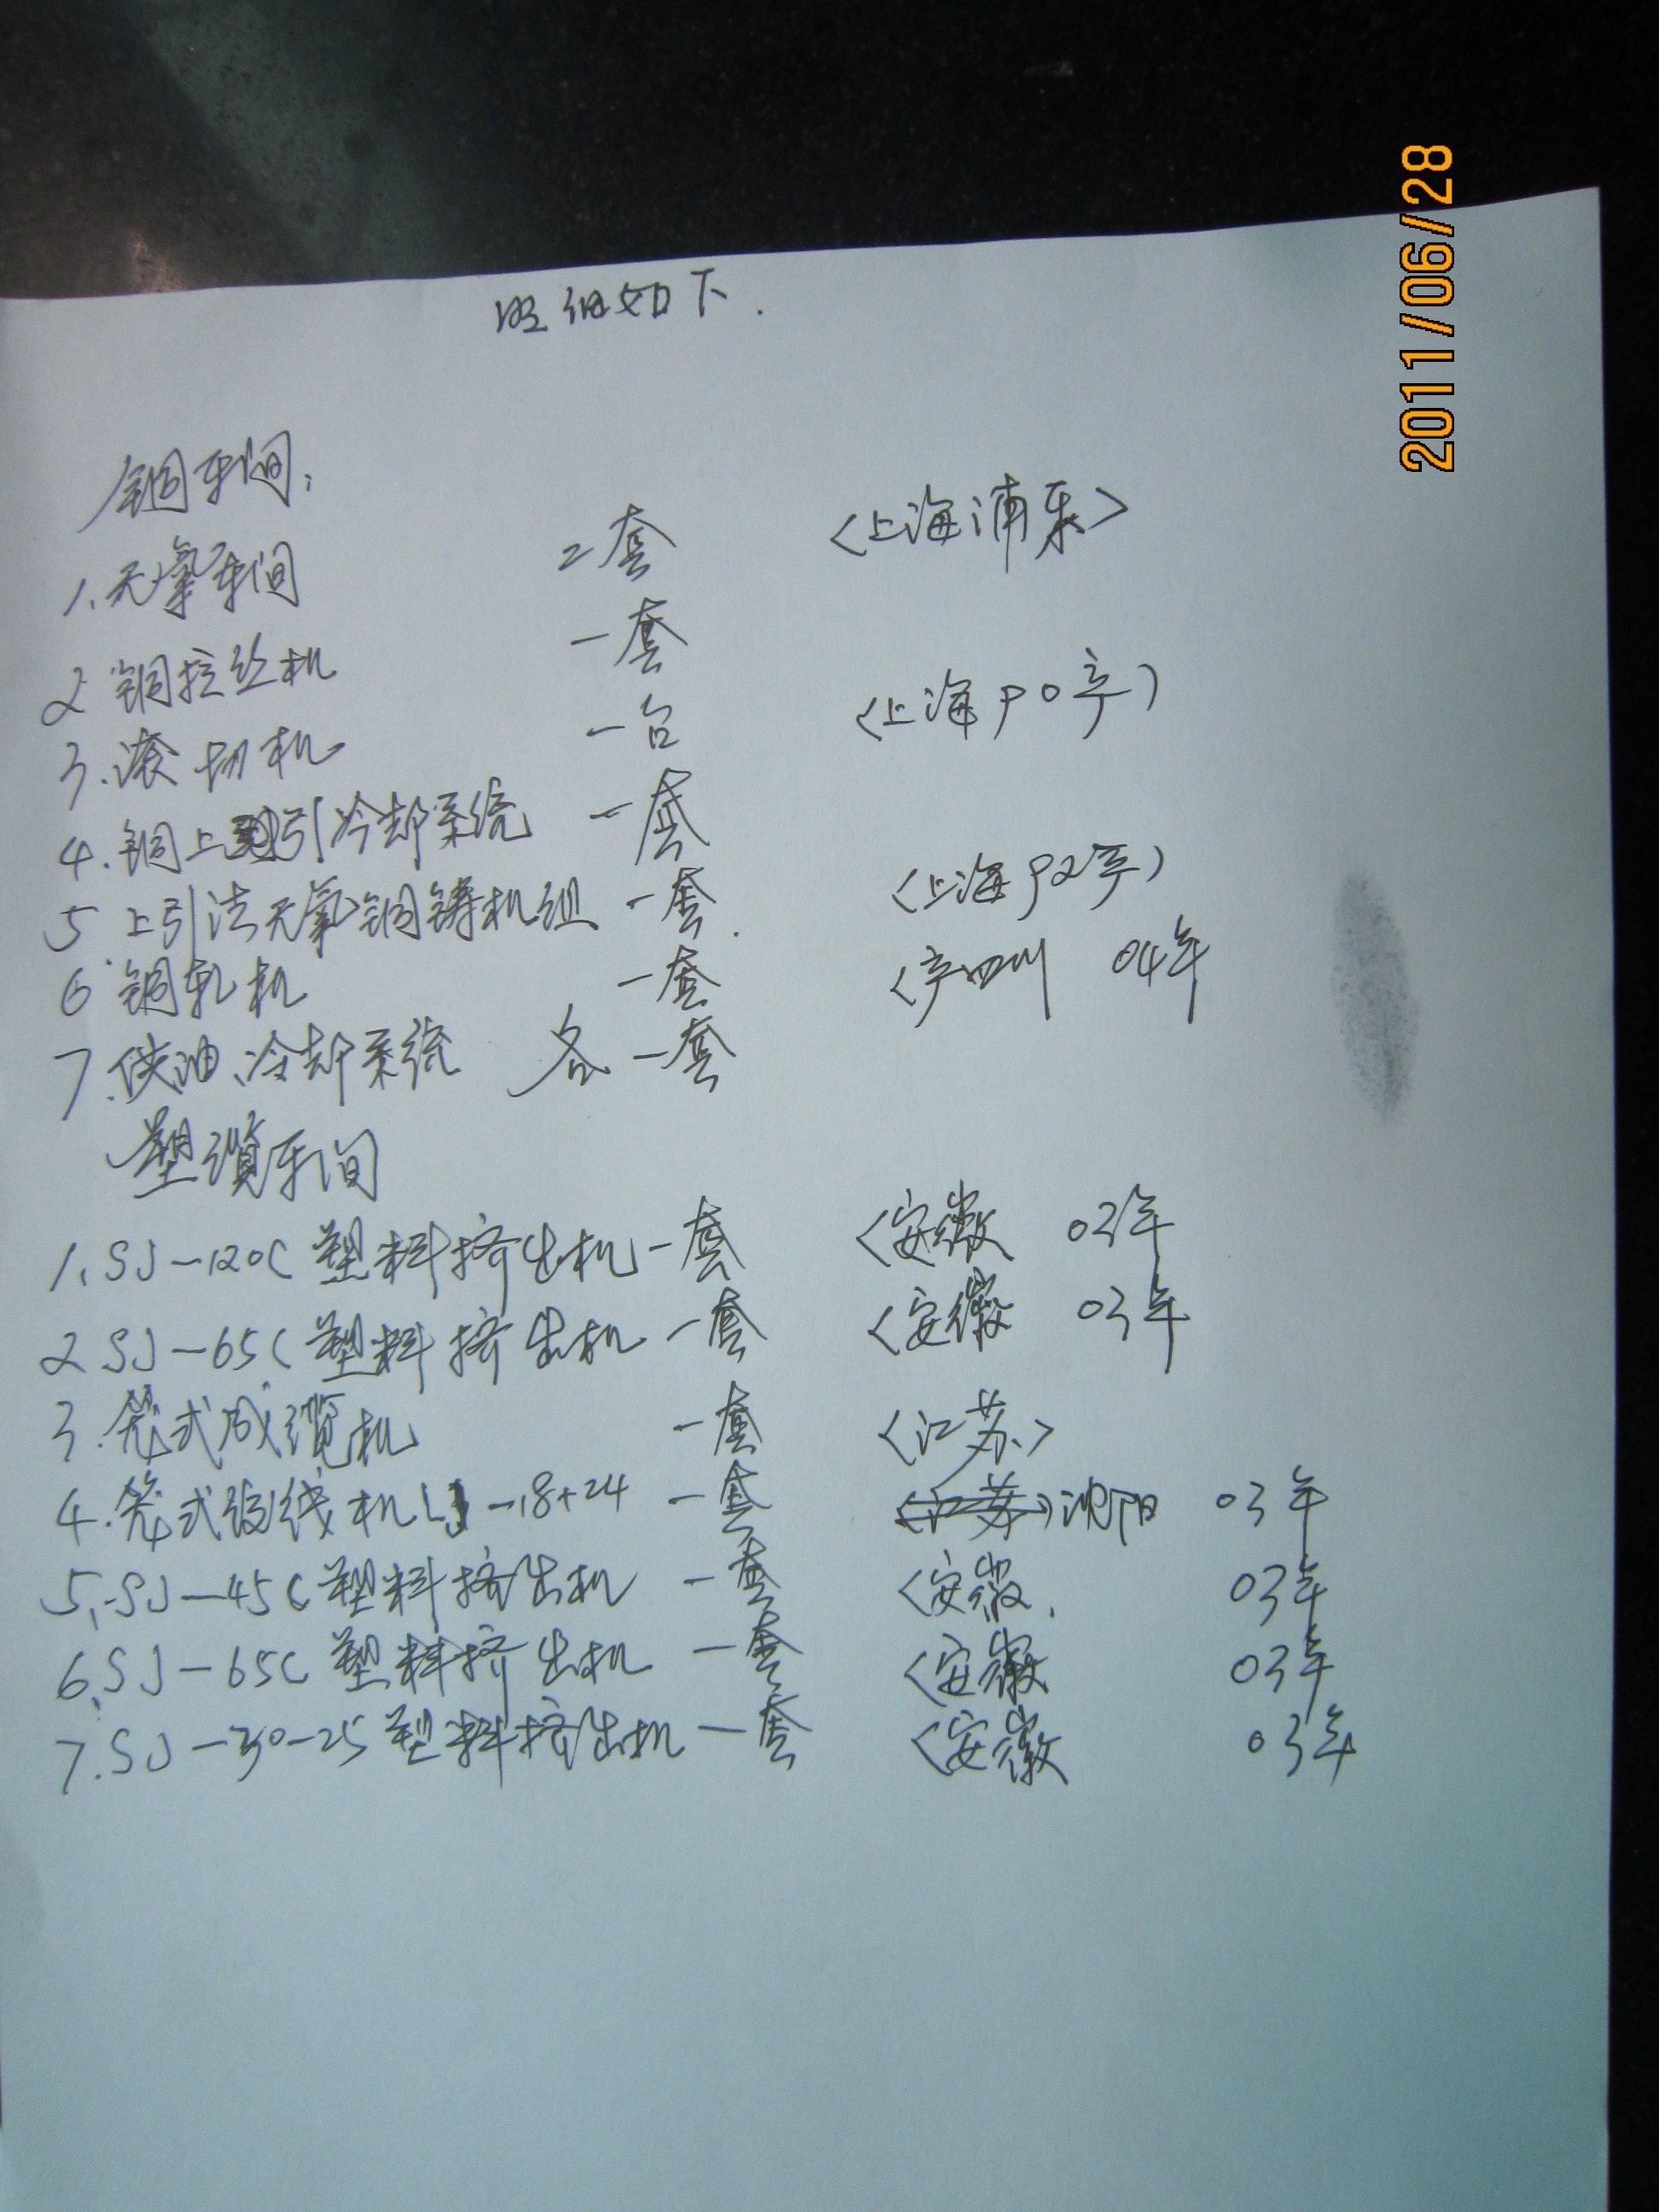 明细如下.
2011/06/28
铜车间:
1.无氧车间 二套 <上海浦东>
2 铜拉丝机 一套
3.滚切机 一台 (上海90年)
4.铜上引冷却系统 一套
5.上引法无氧铜铸机组 一套 (上海92年)
6 铜轧机 一套 <四川 04年
7.供油、冷却系统 各一套
塑缆车间
1.SJ-120C 塑料挤出机 一套 <安徽 03年
2 SJ-65C 塑料挤出机 一套 <安徽 03年
3.笼式成缆机 一套 <江苏>
4.笼式绞线机LJ-18+24 一套 (江苏)沈阳 03年
5.SJ-45C 塑料挤出机 一套 <安徽. 03年
6.SJ-65C 塑料挤出机 一套 <安徽 03年
7.SJ-30-25 塑料挤出机 一套 <安徽 03年